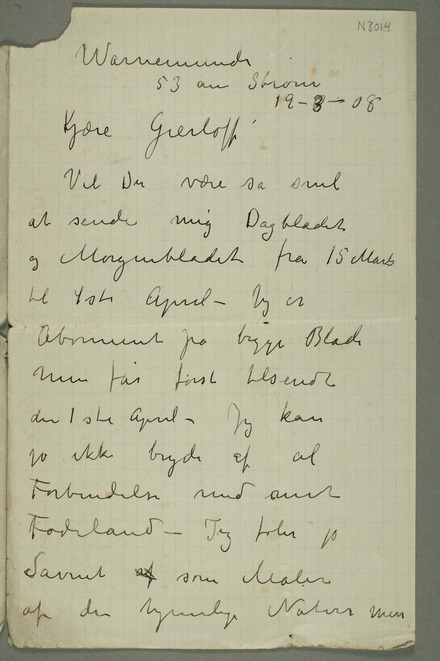 N3014
Warnemünde
53 am Strom
19-3-08
Kjære Gierløff!
Vil De være så snil
at sende mig Dagbladet
og Morgenbladet fra 15 Marts
til 1ste April – Jeg er
Abonnent på begge Blade
men får først tilsendt
den 1ste April – Jeg kan
jo ikke bryde af al
Forbindelse med
Fødeland – Jeg føler jo
Savnet som Maler
af den hjemlige Natur men